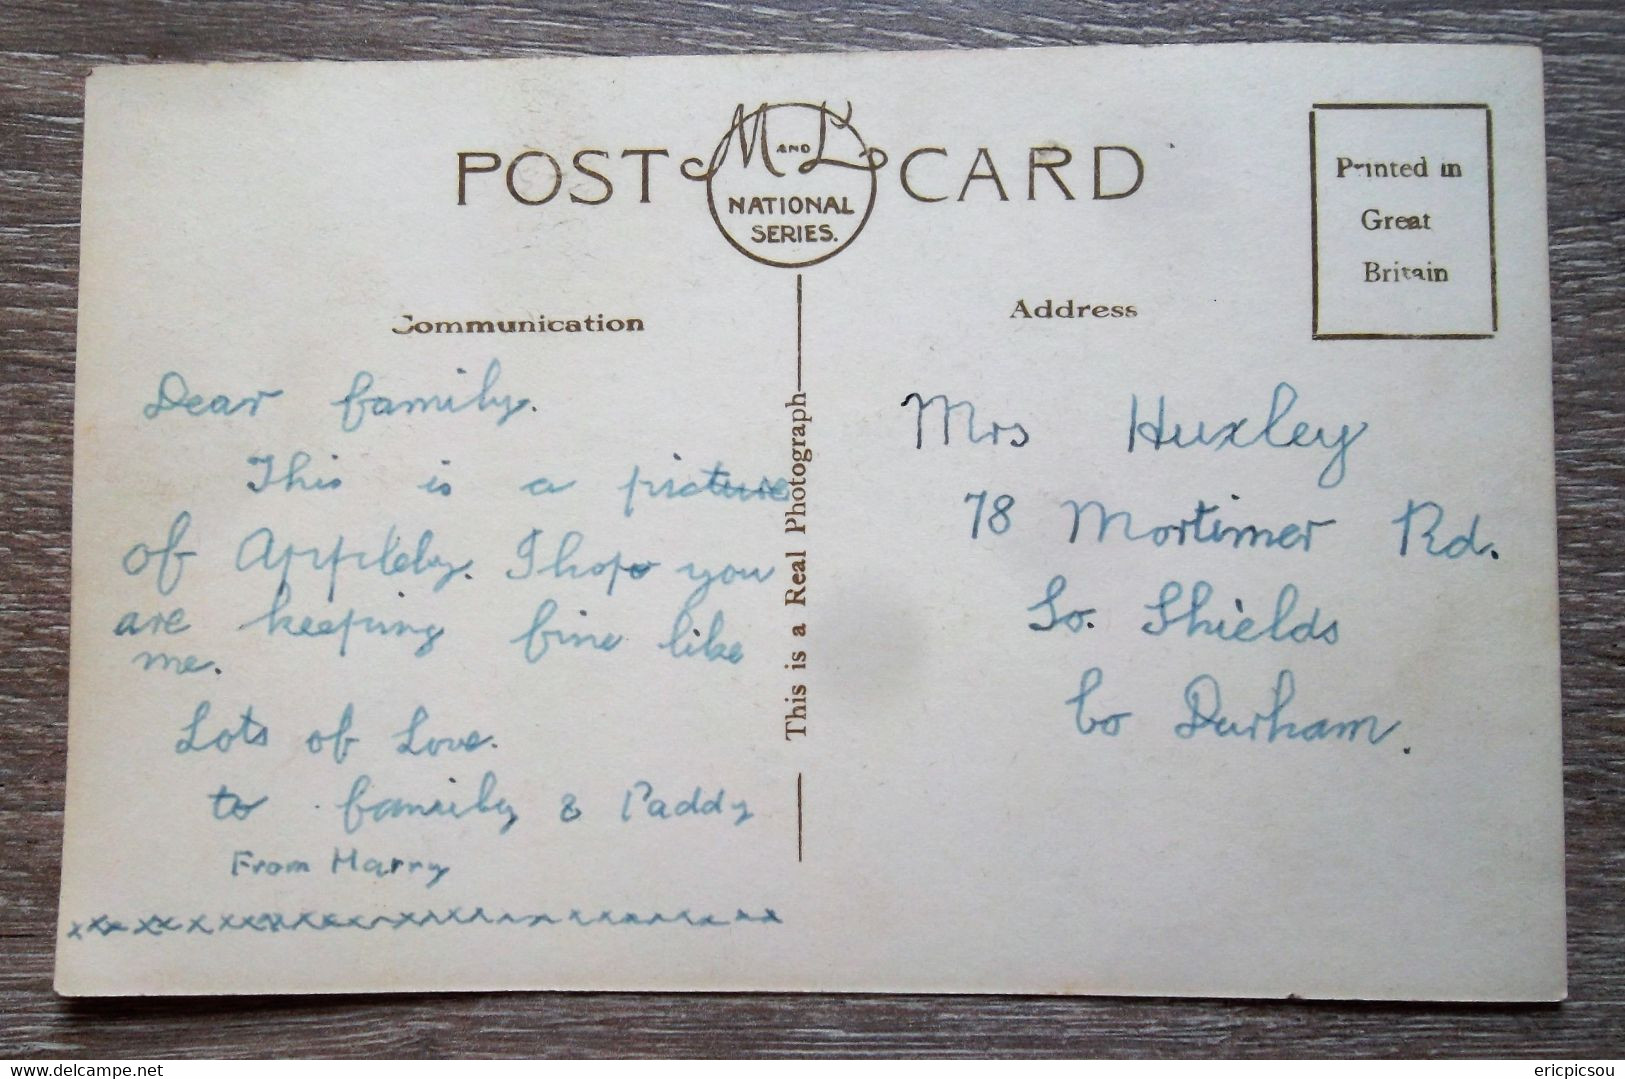 POST CARD
M AND L
NATIONAL
SERIES.
Printed in
Great
Britain
Communication
Address
This is a Real Photograph
Dear family.
This is a picture
of Appleby. I hope you
are keeping fine like
me.
Lots of Love.
to family & Paddy
From Harry
Mrs Huxley
78 Mortimer Rd.
So. Shields
Co Durham.
Delcampe.net
ericpicsou